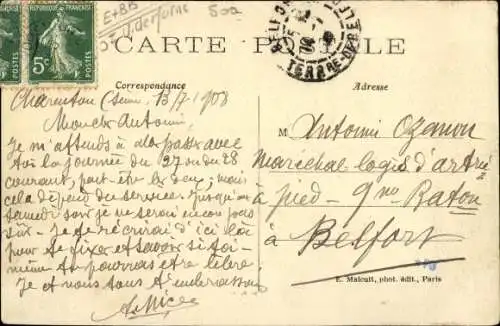 E+BB
500
RÉPUBLIQUE FRANÇAISE
5c
POSTES
CARTE POSTALE
BELFORT
TERRE DE BELFORT
Correspondance
Adresse
Charenton (Seine) 13/7/1908
Mon cher Antonin,
Je m'attends à aller passer avec
toi la journée du 27 ou du 28
courant, peut-être les deux; mais
cela dépend du service. Jusqu'au
samedi soir je ne serai encore pas
sûr. Je t'écrirai d'ici là
pour te fixer et savoir si toi-
même tu pourras être libre.
Je et nous tous t'embrassons
M Antonin Ozanon
Maréchal logis d'artie
à pied - 9me Baton
à
Belfort
E. Malcuit, phot. édit., Paris